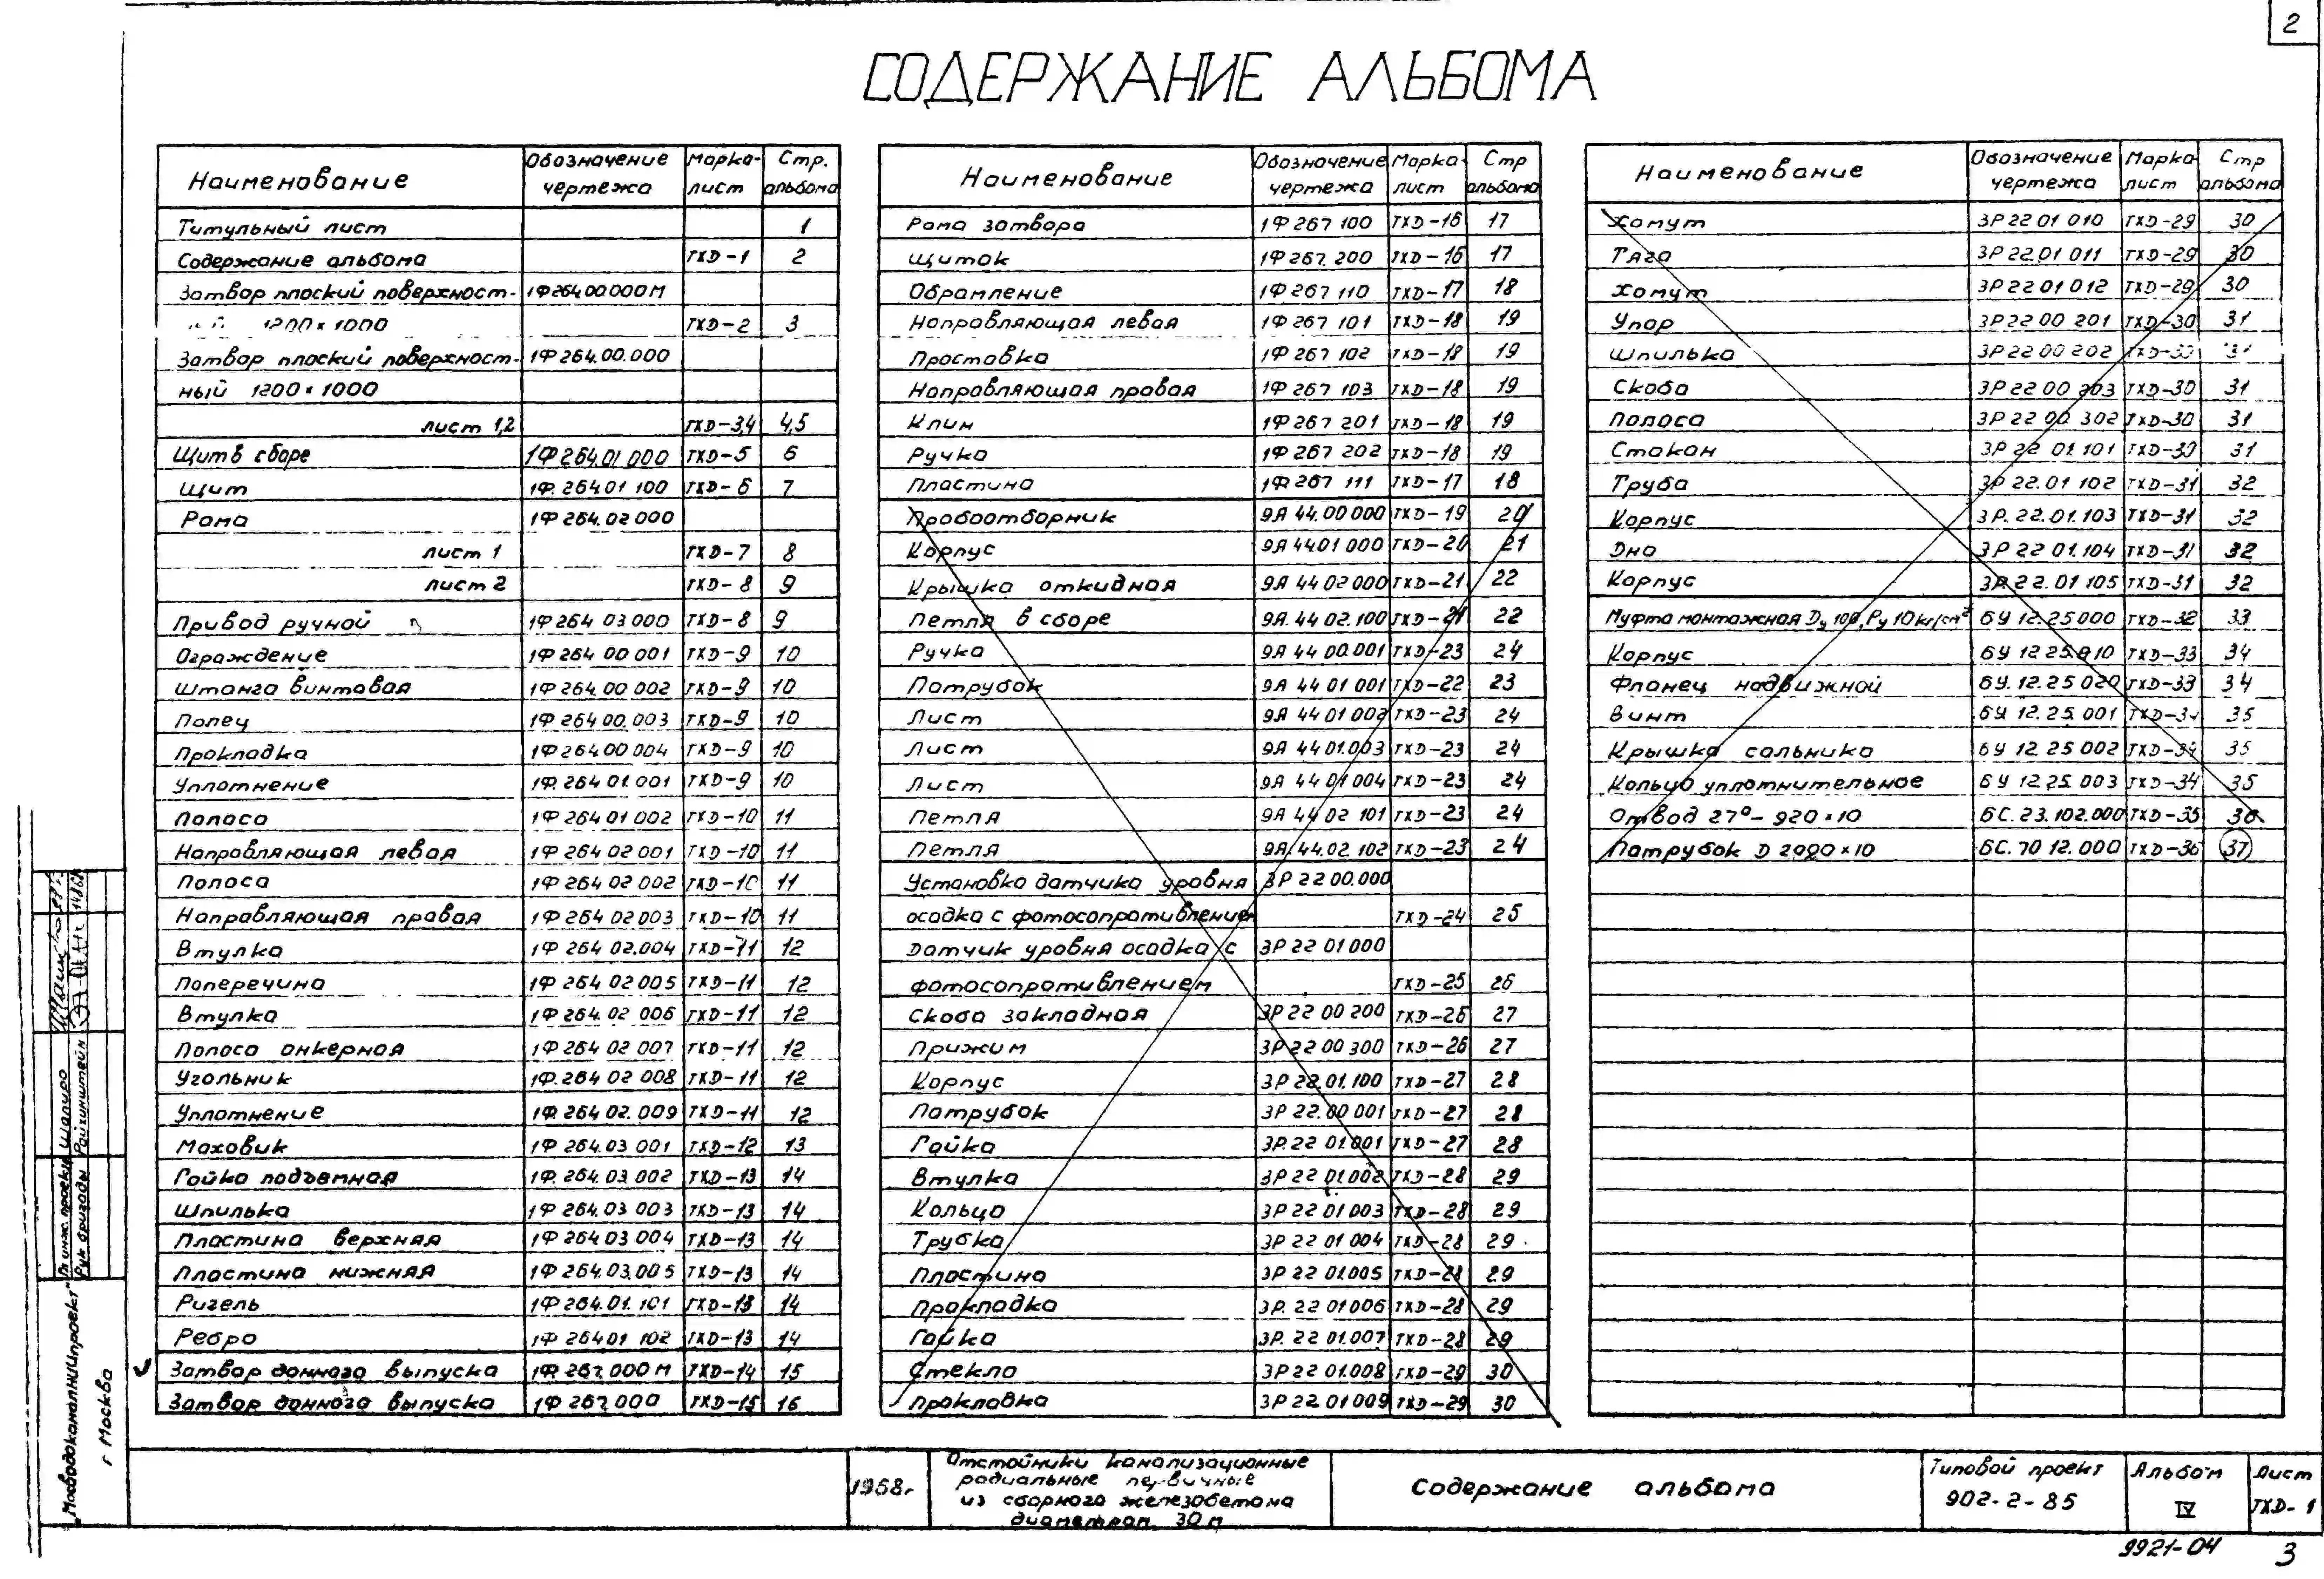 2
СОДЕРЖАНИЕ АЛЬБОМА
Наименование Обозначение чертежа Марка-лист Стр. альбома
Титульный лист 1
Содержание альбома ТХД-1 2
Затвор плоский поверхност- 1Ф264.00.000М
1200×1000 ТХД-2 3
Затвор плоский поверхност- 1Ф264.00.000
ный 1200×1000
лист 1,2 ТХД-3,4 4,5
Щит в сборе 1Ф264.01 000 ТХД-5 6
Щит 1Ф.264.01 100 ТХД-6 7
Рама 1Ф264.02 000
лист 1 ТХД-7 8
лист 2 ТХД-8 9
Привод ручной 1Ф264 03 000 ТХД-8 9
Ограждение 1Ф264 00 001 ТХД-9 10
Штанга винтовая 1Ф264.00 002 ТХД-9 10
Палец 1Ф264 00.003 ТХД-9 10
Прокладка 1Ф264 00 004 ТХД-9 10
Уплотнение 1Ф.264 01.001 ТХД-9 10
Полоса 1Ф264 01 002 ТХД-10 11
Направляющая левая 1Ф264 02 001 ТХД-10 11
Полоса 1Ф264 02 002 ТХД-10 11
Направляющая правая 1Ф264 02 003 ТХД-10 11
Втулка 1Ф264 02.004 ТХД-11 12
Поперечина 1Ф264 02 005 ТХД-11 12
Втулка 1Ф264.02 006 ТХД-11 12
Полоса анкерная 1Ф264 02 007 ТХД-11 12
Угольник 1Ф.264 02 008 ТХД-11 12
Уплотнение 1Ф.264 02.009 ТХД-11 12
Маховик 1Ф264.03 001 ТХД-12 13
Гайка подъемная 1Ф.264.03.002 ТХД-13 14
Шпилька 1Ф264.03 003 ТХД-13 14
Пластина верхняя 1Ф264 03 004 ТХД-13 14
Пластина нижняя 1Ф264.03.005 ТХД-13 14
Ригель 1Ф264.01.101 ТХД-13 14
Ребро 1Ф 264.01 102 ТХД-13 14
Затвор донного выпуска 1Ф267.000 М ТХД-14 15
Затвор донного выпуска 1Ф267.000 ТХД-15 16
Наименование Обозначение чертежа Марка-лист Стр альбома
Рама затвора 1Ф267 100 ТХД-16 17
Щиток 1Ф267.200 ТХД-16 17
Обрамление 1Ф267 110 ТХД-17 18
Направляющая левая 1Ф267 101 ТХД-18 19
Проставка 1Ф267 102 ТХД-18 19
Направляющая правая 1Ф267 103 ТХД-18 19
Клин 1Ф267 201 ТХД-18 19
Ручка 1Ф267 202 ТХД-18 19
Пластина 1Ф267 111 ТХД-17 18
Пробоотборник 9Я 44.00 000 ТХД-19 20
Корпус 9Я 44.01 000 ТХД-20 21
Крышка откидная 9Я 44 02 000 ТХД-21 22
Петля в сборе 9Я.44 02.100 ТХД-21 22
Ручка 9Я 44 00.001 ТХД-23 24
Патрубок 9Я 44 01 001 ТХД-22 23
Лист 9Я 44 01 002 ТХД-23 24
Лист 9Я 44 01.003 ТХД-23 24
Лист 9Я 44 01 004 ТХД-23 24
Петля 9Я 44 02 101 ТХД-23 24
Петля 9Я.44.02.102 ТХД-23 24
Установка датчика уровня 3Р 22 00.000
осадка с фотосопротивлением ТХД-24 25
Датчик уровня осадка с 3Р 22 01 000
фотосопротивлением ТХД-25 26
Скоба закладная 3Р 22 00 200 ТХД-26 27
Прижим 3Р 22 00 300 ТХД-26 27
Корпус 3Р 22.01.100 ТХД-27 28
Патрубок 3Р 22.00 001 ТХД-27 28
Гайка 3Р.22 01.001 ТХД-27 28
Втулка 3Р 22 01.002 ТХД-28 29
Кольцо 3Р 22 01 003 ТХД-28 29
Трубка 3Р 22 01 004 ТХД-28 29
Пластина 3Р 22 01.005 ТХД-28 29
Прокладка 3Р. 22 01 006 ТХД-28 29
Гайка 3Р. 22 01.007 ТХД-28 29
Стекло 3Р 22 01.008 ТХД-29 30
Прокладка 3Р 22 01 009 ТХД-29 30
Наименование Обозначение чертежа Марка-лист Стр альбома
Хомут 3Р 22 01 010 ТХД-29 30
Тяга 3Р 22.01 011 ТХД-29 30
Хомут 3Р 22 01 012 ТХД-29 30
Упор 3Р 22 00 201 ТХД-30 31
Шпилька 3Р 22 00 202 ТХД-30 31
Скоба 3Р 22 00 203 ТХД-30 31
Полоса 3Р 22 00 302 ТХД-30 31
Стакан 3Р 22 01.101 ТХД-30 31
Труба 3Р 22.01 102 ТХД-31 32
Корпус 3Р. 22.01.103 ТХД-31 32
Дно 3Р 22 01.104 ТХД-31 32
Корпус 3Р.22.01 105 ТХД-31 32
Муфта монтажная Dу 100, Ру 10 кг/см² 6У 12.25 000 ТХД-32 33
Корпус 6У 12 25.010 ТХД-33 34
Фланец надвижной 6У.12.25 020 ТХД-33 34
Винт 6У 12.25.001 ТХД-34 35
Крышка сальника 6У 12 25 002 ТХД-34 35
Кольцо уплотнительное 6У 12.25 003 ТХД-34 35
Отвод 27°- 920×10 6С.23.102.000 ТХД-35 36
Патрубок D 2020×10 6С.70 12.000 ТХД-36 37
Гл инж. проекта Шапиро
Рук бригады Райхинштейн
"Мосводоканалниипроект"
г Москва
1968г.
Отстойники канализационные
радиальные первичные
из сборного железобетона
диаметром 30 м
Содержание альбома
Типовой проект
902-2-85
Альбом
IV
Лист
ТХД-1
9921-04
3